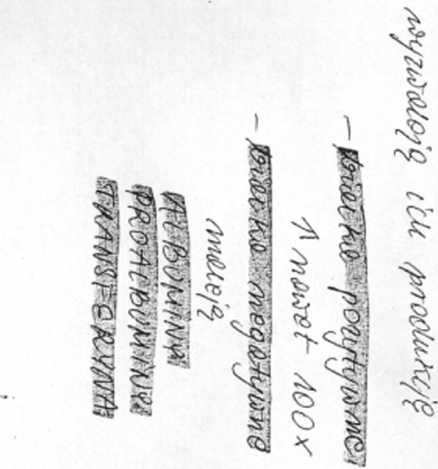 wyzwalają ich produkcję
- białka pozytywne
↑ nawet 100x
- białka negatywne
maleją
ALBUMINA
PREALBUMINA
TRANSFERYNA